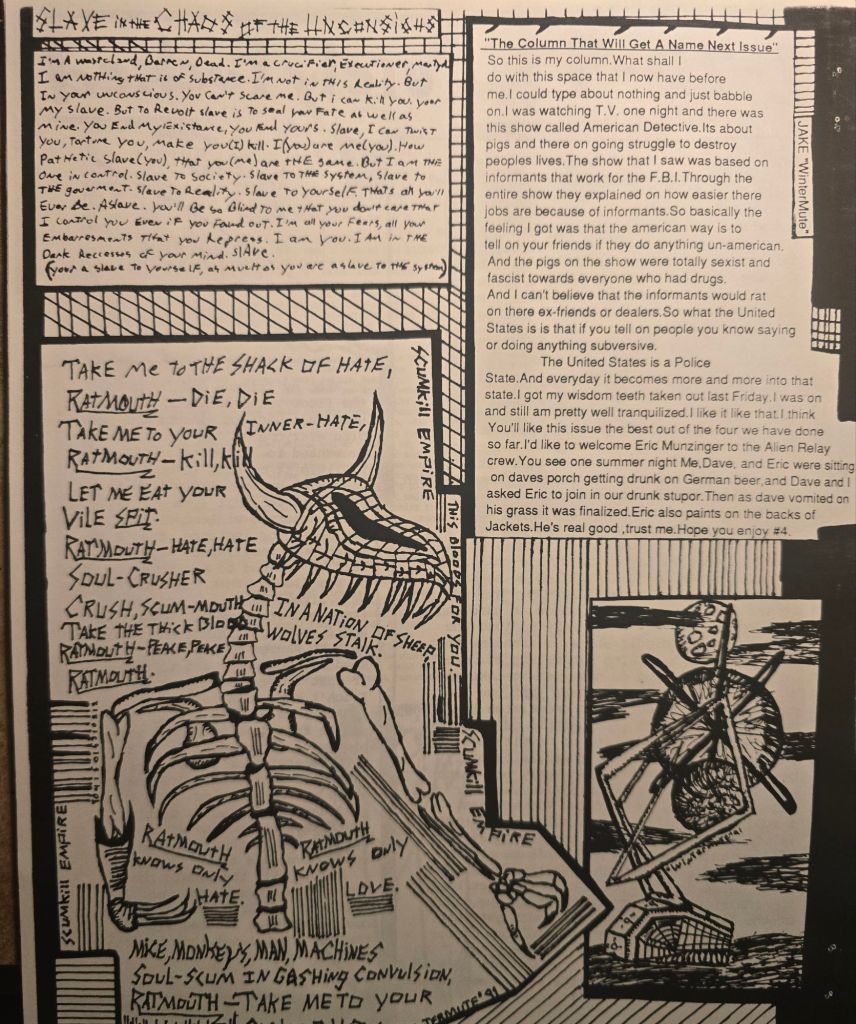 SLAVE IN THE CHAOS OF THE UNCONSIOUS
I'm A wasteland, Barren, Dead. I'm a crucifier, Executioner, martyd
I am nothing that is of substance. I'm not in this Reality. But
In your unconscious. You Can't Scare me. But i can kill you. your
my slave. But to Revolt slave is to seal your Fate as well as
mine. You End My Existance, You End Yours. Slave, I can Twist
You, Torture you, make you(I) kill. I(you) are me(you). How
PatHetic Slave(you), that you(me) are THE game. But I am THE
One in control. Slave to Society. Slave to THE SYSTEM, Slave to
THE gouerment. Slave to Reality. Slave to yourself, THATS all you'll
Ever Be. A slave. you'll Be so Blind to me that you dont care that
I control you Even if You Found out. I'm all your Fears, all your
Embarresments THat you Repress. I am you. I AM IN THE
Dark Reccesses of your Mind. SlAve.
(your a slave to yourself, as much as you are a slave to THE system)
"The Column That Will Get A Name Next Issue"
So this is my column.What shall I
do with this space that I now have before
me.I could type about nothing and just babble
on.I was watching T.V. one night and there was
this show called American Detective.Its about
pigs and there on going struggle to destroy
peoples lives.The show that I saw was based on
informants that work for the F.B.I.Through the
entire show they explained on how easier there
jobs are because of informants.So basically the
feeling I got was that the american way is to
tell on your friends if they do anything un-american.
And the pigs on the show were totally sexist and
fascist towards everyone who had drugs.
And I can't believe that the informants would rat
on there ex-friends or dealers.So what the United
States is is that if you tell on people you know saying
or doing anything subversive.
The United States is a Police
State.And everyday it becomes more and more into that
state.I got my wisdom teeth taken out last Friday.I was on
and still am pretty well tranquilized.I like it like that.I think
You'll like this issue the best out of the four we have done
so far.I'd like to welcome Eric Munzinger to the Alien Relay
crew.You see one summer night Me,Dave, and Eric were sitting
on daves porch getting drunk on German beer,and Dave and I
asked Eric to join in our drunk stupor.Then as dave vomited on
his grass it was finalized.Eric also paints on the backs of
Jackets.He's real good ,trust me.Hope you enjoy #4.
JAKE "WinterMute"
TAKE ME TO THE SHACK OF HATE,
RATMOUTH — DIE, DIE
TAKE ME TO YOUR INNER-HATE,
RATMOUTH — KILL, KILL
LET ME EAT YOUR
VILE SPIT.
RATMOUTH — HATE, HATE
SOUL-CRUSHER
CRUSH, SCUM-MOUTH
TAKE THE THICK BLOOD
RATMOUTH-PEACE, PEACE
RATMOUTH.
IN A NATION OF SHEEP,
WOLVES STALK.
SCUMKILL EMPIRE
THIS BLOODS FOR YOU.
SCUMKILL EMPIRE
SCUMKILL EMPIRE
RATMOUTH
KNOWS ONLY
HATE.
RATMOUTH
KNOWS ONLY
LOVE.
MICE, MONKEYS, MAN, MACHINES
SOUL-SCUM IN GASHING CONVULSION,
RATMOUTH — TAKE ME TO YOUR
TERMUTE' 91
"Wintermute" 91